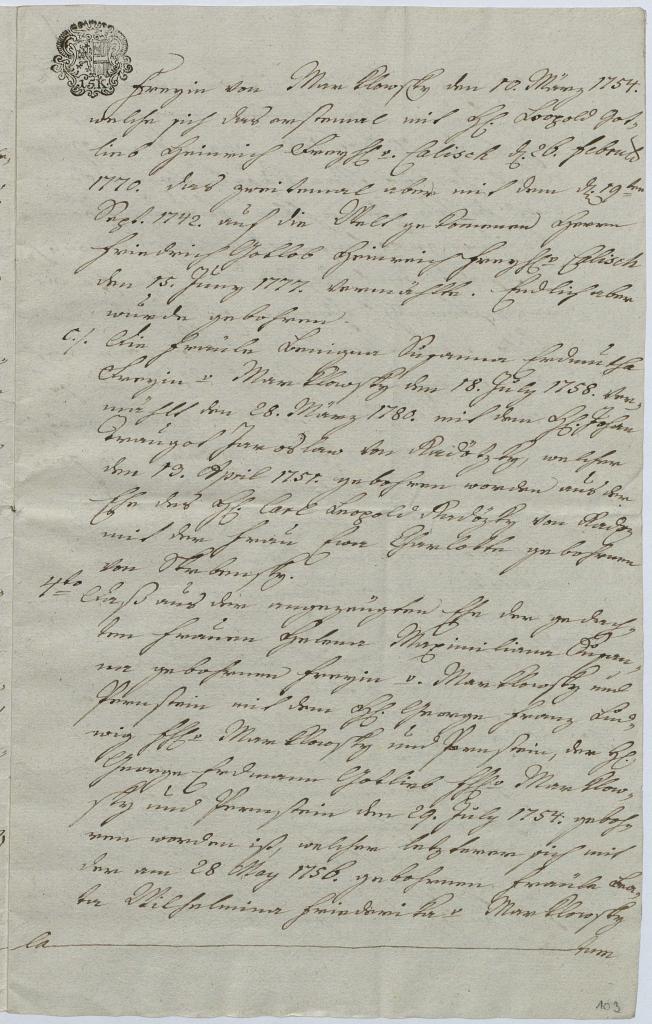 15K
Freyin von Marklowsky den 10. März 1754.
welche sich das erstemal mit H. Leopold Got-
lieb Heinrich Freyh. v. Calisch d. 26. Februar
1770. das zweitemal aber mit dem d. 19ten
Sept. 1742. auf die Welt gekommenen Herrn
Friedrich Gotlob Heinrich Freyh. v. Calisch
den 15. Juny 1777. vermählte. Endlich aber
wurde gebohren.
c./. Die Fräule Benigna Susanna Erdmutha
Freyin v. Marklowsky den 18. July 1758. ver-
mählt den 28. März 1780. mit dem H. Johan
Traugot Jaroslaw von Radötzky, welcher
den 13. April 1751. gebohren worden aus der
Ehe des H. Carl Leopold Radözky von Radoz
mit der Frau Eva Charlotte gebohrnen
von Skrbensky.
4to Daß aus der angezeugten Ehe der gedach-
ten Frauen Helena Maximiliana Susan-
na gebohrnen Freyin v. Marklowsky und
Pernstein mit dem H. George Franz Lud-
wig Fh. v. Marklowsky und Pernstein, der H.
George Erdmann Gotlieb Fh. v. Marklow-
sky und Pernstein den 29. July 1754. geboh-
ren worden ist, welcher letzterer sich mit
der am 28 May 1756. gebohrnen Fräule Bea-
ta Wilhelmina Friederika v. Marklowsky
103